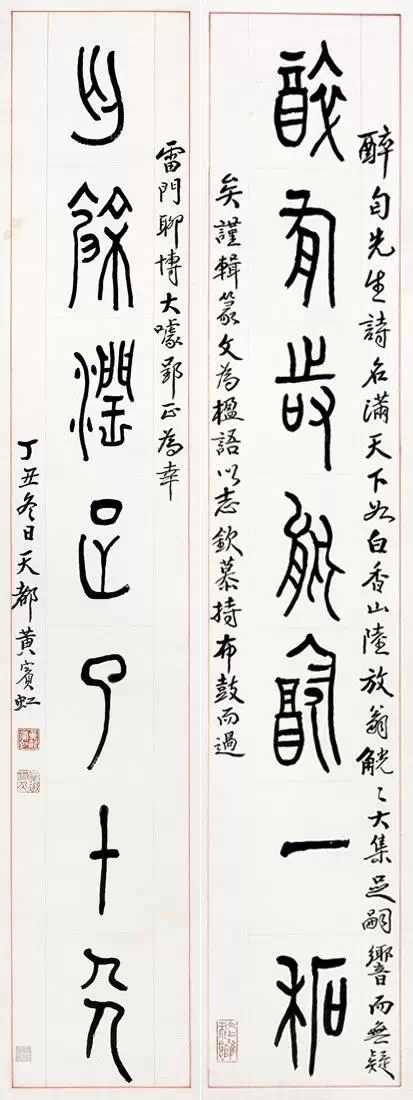 醉先生詩名滿天下如白香山陸放翁觥〻大集足嗣響而無疑
有能一
矣謹輯篆文為楹語以志欽慕持布鼓而過
雷門聊博大噱郢正為幸
餘潤足十
丁丑冬日天都黃賓虹